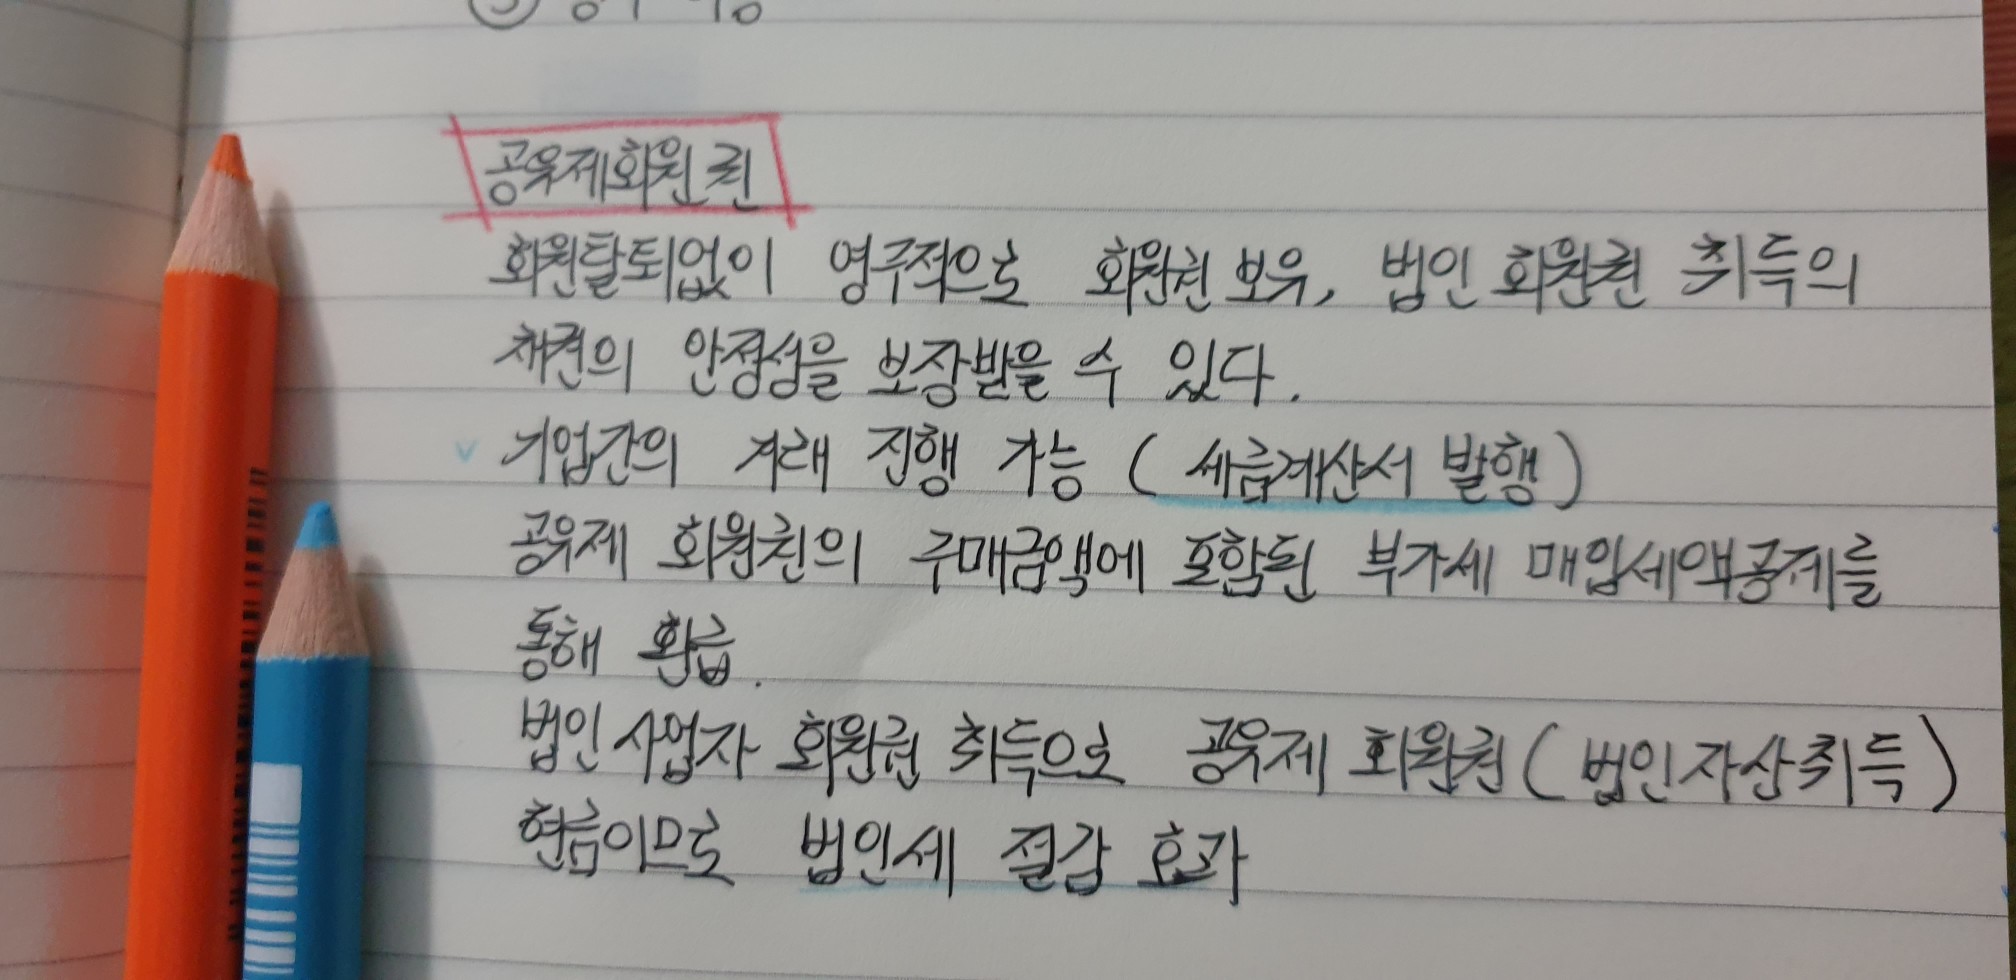 공유제회원권
회원탈퇴없이 영구적으로 회원권 보유, 법인 회원권 취득의
채권의 안정성을 보장받을 수 있다.
v 기업간의 거래 진행 가능 (세금계산서 발행)
공유제 회원권의 구매금액에 포함된 부가세 매입세액공제를
통해 환급.
법인 사업자 회원권 취득으로 공유제 회원권 (법인자산취득)
현금이므로 법인세 절감 효과